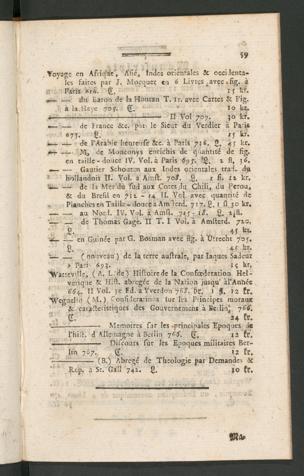 59
Voyage en Afrique, Asie, Indes orientales & occidenta-
les faites par J. Mocquet en 6 Livres avec fig. à
Paris 616. C. 15 kr.
— — du Baron de la Hontan T. 1r. avec Cartes & Fig.
à la Haye 705. C. 10 kr.
— II Vol 707. 30 kr.
— — de France &c. par le Sieur du Verdier à Paris
673. L. 15 kr.
— — de l'Arabie heureuse &c. à Paris 716. L. 45 kr.
— — M. de Monconys Enrichis de quantité de fig.
en taille-douce IV. Vol. à Paris 695. L. 2 fl. 36.
— — Gautier Schouten aux Indes orientales trad. du
hollandois II. Vol. à Amst. 708. L. 2 fl. 12 kr.
— — de la Mer du sud aux Cotes du Chili, du Perou,
& du Bresil en 712 - 14 II. Vol. avec quantité de
Planches en Taille-douce à Amsterd. 717. L. 1 fl 30 kr.
— — au Nord. IV. Vol. à Amst. 715-18. L. 2 fl.
— — de Thomas Gage. II T. I Vol. à Amsterd. 720.
L. 45 kr.
— — en Guinée par G. Bosman avec fig. à Utrecht 705.
L. 45 kr.
— — (nouveau) de la terre australe, par Jaques Sadeur
à Paris 693. 15 kr.
Watteville, (A. L. de) Histoire de la Confœderation Hel-
vetique & Hist. abregée de la Nation jusqu'à l'Année
664, II Vol. 3e Ed. à Yverdon 768. Br. 1 fl. 12 kr.
Weguelin (M.) Considerations sur les Principes moraux
& caracteristiques des Gouvernemens à Berlin, 766.
C. 24 kr.
— Memoires sur les principales Epoques de
l'hist. d'Allemagne à Berlin 766. C. 12 kr.
— Discours sur les Epoques militaires Ber-
lin 767. C. 12 kr.
— (B.) Abregé de Theologie par Demandes &
Rep. à St. Gall 742. L. 10 kr.
Ma-